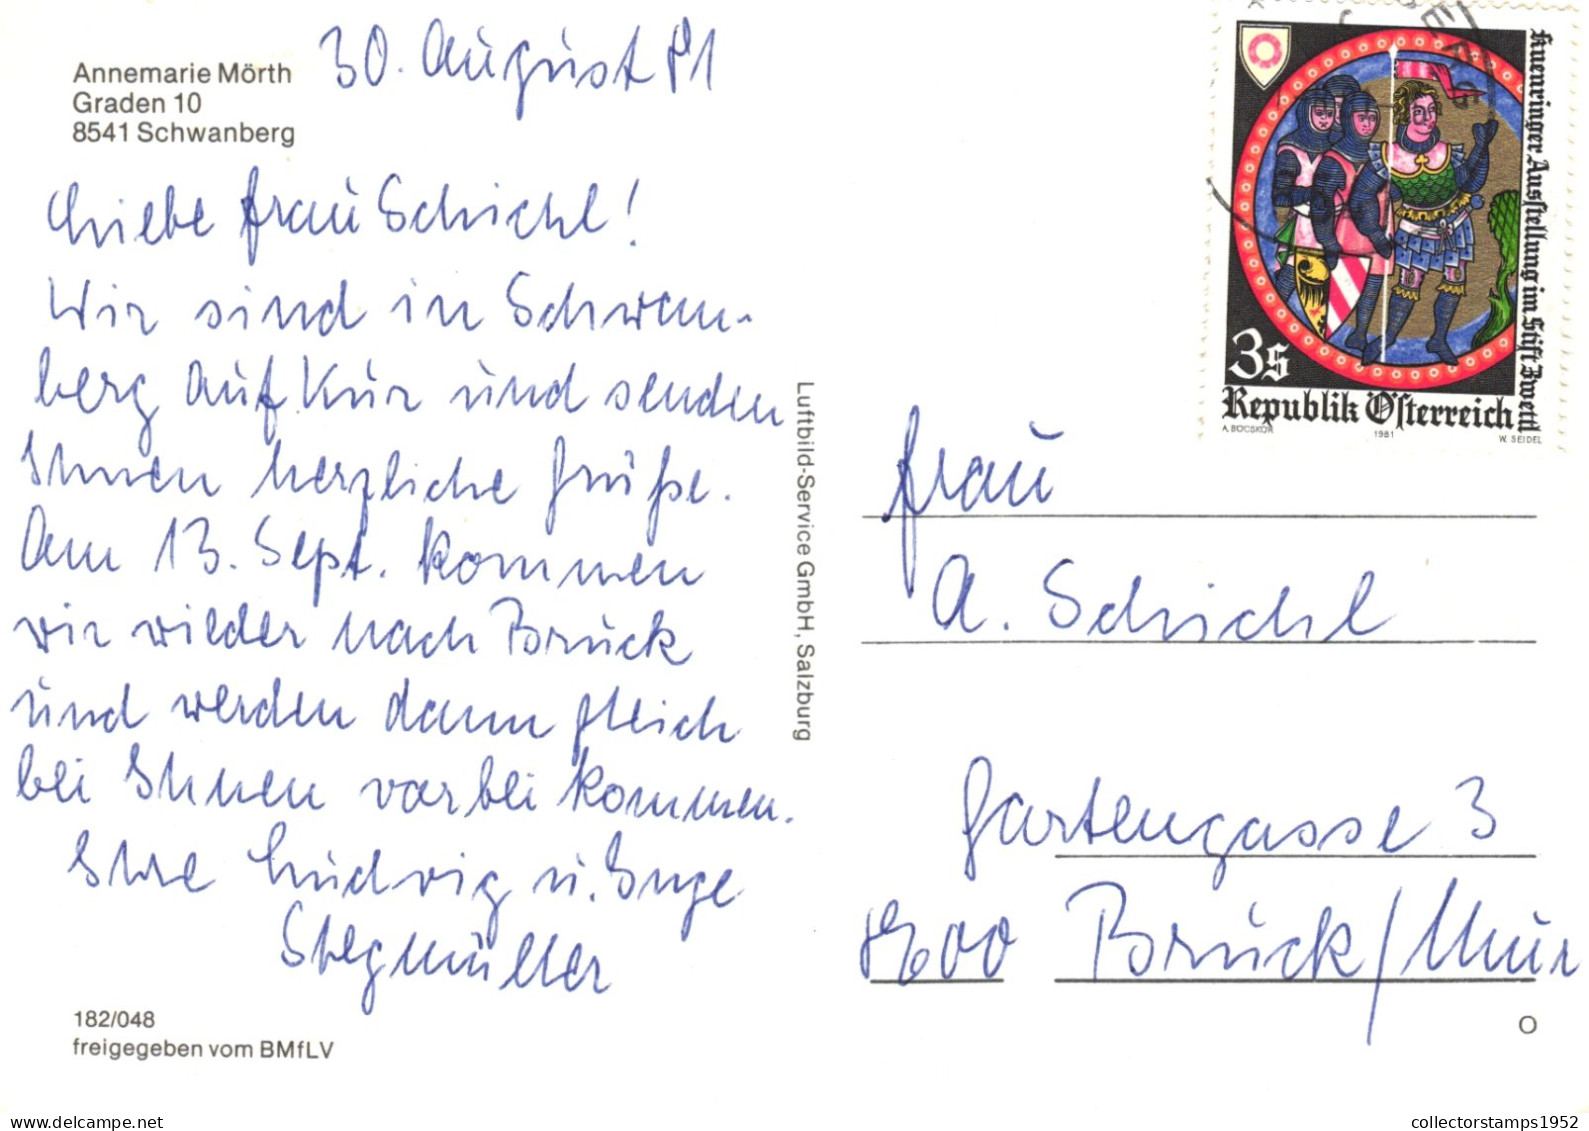 30. August 81
Annemarie Mörth
Graden 10
8541 Schwanberg
Liebe Frau Schichl!
Wir sind in Schwan-
berg auf Kur und senden
Ihnen herzliche Grüße.
Am 13. Sept. kommen
wir wieder nach Bruck
und werden dann gleich
bei Ihnen vorbei kommen.
Ihre Ludwig u. Inge
Stegmüller
182/048
freigegeben vom BMfLV
Luftbild-Service GmbH, Salzburg
Kuenringer Ausstellung im Stift Zwettl
3S
Republik Österreich
A. BÖCSKÖR 1981 W. SEIDEL
Frau
A. Schichl
Gartengasse 3
8600 Bruck/Mur
O
collectorstamps1952